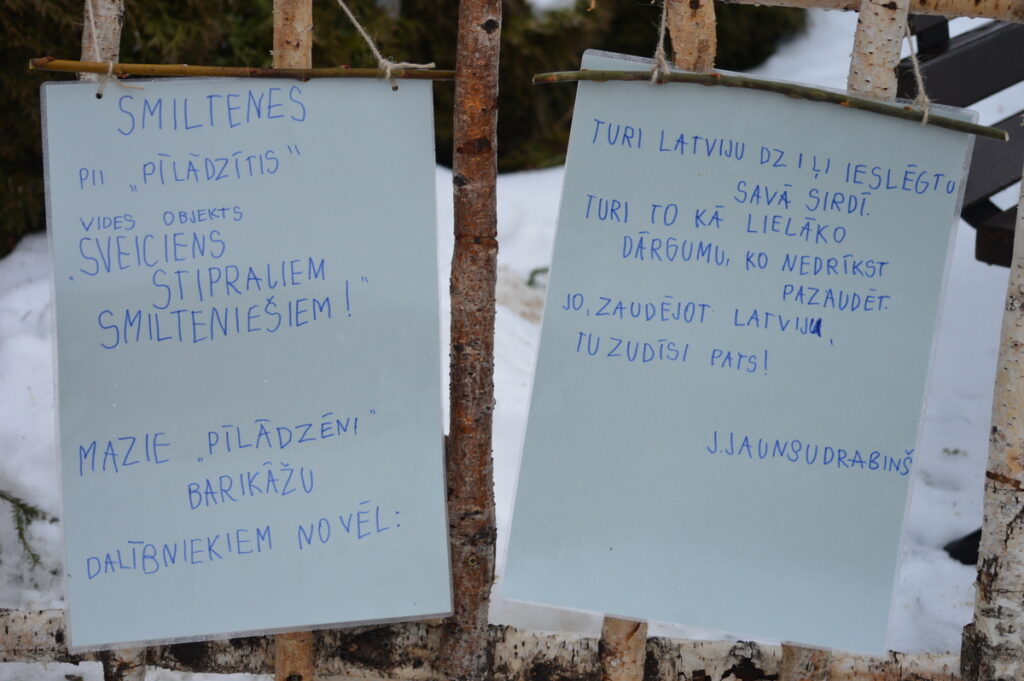 SMILTENES
PII „PĪLĀDZĪTIS"
VIDES OBJEKTS
„SVEICIENS
STIPRAJIEM
SMILTENIEŠIEM!"
MAZIE „PĪLĀDZĒNI"
BARIKĀŽU
DALĪBNIEKIEM NOVĒL:
TURI LATVIJU DZIĻI IESLĒGTU
SAVĀ SIRDĪ.
TURI TO KĀ LIELĀKO
DĀRGUMU, KO NEDRĪKST
PAZAUDĒT.
JO, ZAUDĒJOT LATVIJU,
TU ZUDĪSI PATS!
J.JAUNSUDRABIŅŠ